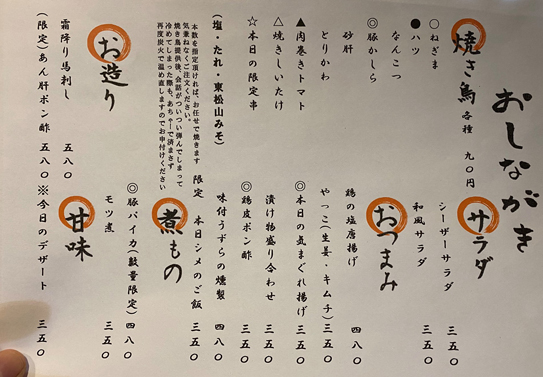 おしながき
焼き鳥 各種 九〇円
〇ねぎま
●ハツ
なんこつ
◎豚かしら
砂肝
とりかわ
▲肉巻きトマト
△焼きしいたけ
☆本日の限定串
(塩・たれ・東松山みそ)
本数を指定頂ければ、お任せで焼きます
気兼ねなくご注文ください。
焼き鳥提供後、会話がついつい弾んでしまって
冷めてしまった際も、あちゃーで済まさず
再度炭火で温め直しますのでお申付けください
お造り
霜降り馬刺し 五八〇
(限定)あん肝ポン酢 五八〇
サラダ
シーザーサラダ 三五〇
和風サラダ 三五〇
おつまみ
鶏の塩唐揚げ 四八〇
やっこ(生姜・キムチ)三五〇
◎本日の気まぐれ揚げ 三五〇
漬け物盛り合わせ 三五〇
◎鶏皮ポン酢 三五〇
味付うずらの燻製 四八〇
限定 本日シメのご飯 三五〇
煮もの
◎豚バイカ(数量限定)四八〇
モツ煮 三五〇
甘味
※今日のデザート 三五〇